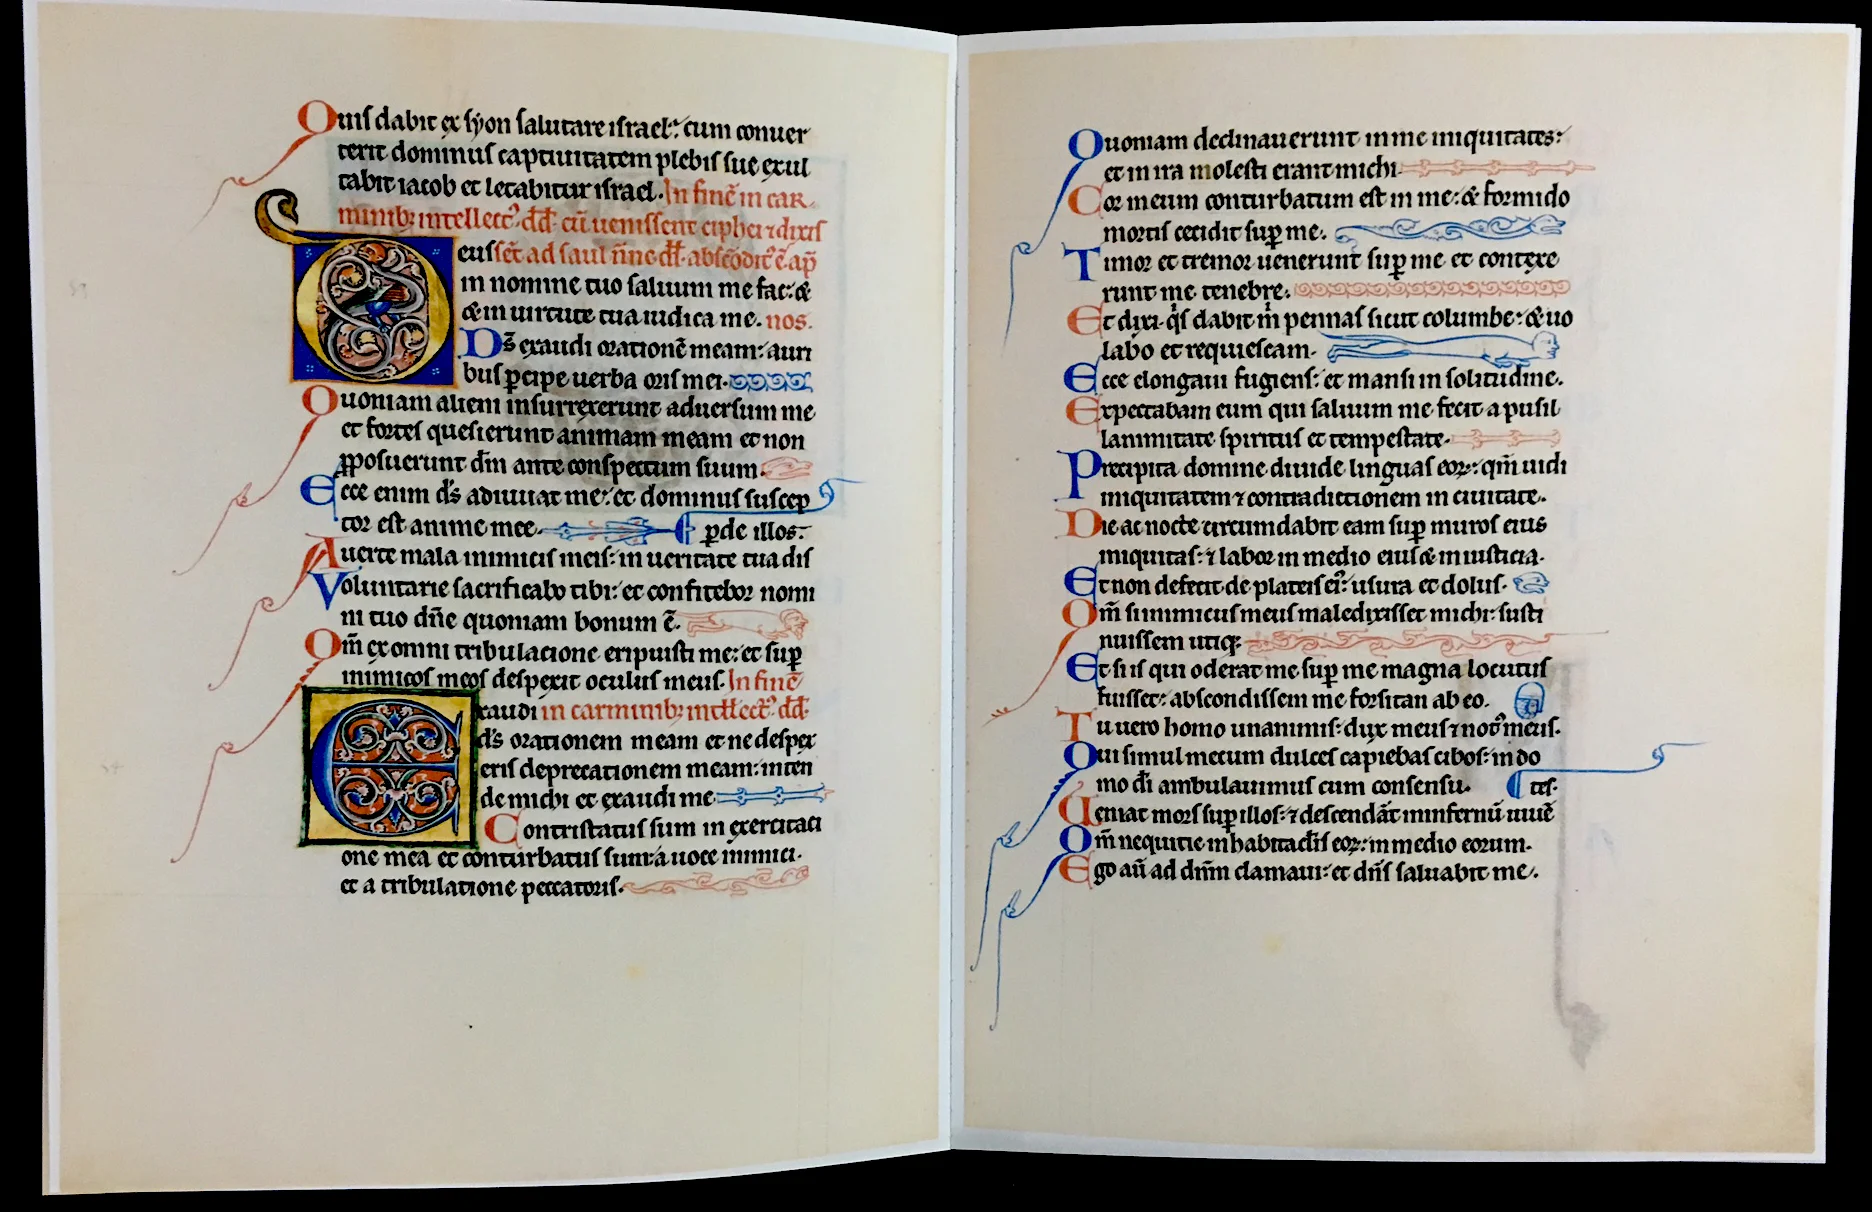 Quis dabit ex syon salutare israel: cum conuer
terit dominus captiuitatem plebis sue exul
tabit iacob et letabitur israel. In finē in car
minibȝ intellectꝰ dd̄ cū uenissent ciphei ⁊ dixis
eus sēt ad saul n̄ne dd̄ abscōdit ē ap̄
in nomine tuo saluum me fac: &
& in uirtute tua iudica me. nos.
Ds̄ exaudi orationē meam: auri
bus ꝑcipe uerba oris mei.
Quoniam alieni insurrexerunt aduersum me
et fortes quesierunt animam meam et non
ꝓposuerunt dm̄ ante conspectum suum.
Ecce enim ds̄ adiuuat me: et dominus suscep
tor est anime mee. ꝑde illos.
Auerte mala inimicis meis: in ueritate tua dis
Voluntarie sacrificabo tibi: et confitebor nomi
ni tuo dn̄e quoniam bonum ē.
Qm̄ ex omni tribulacione eripuisti me: et suꝑ
inimicos meos despexit oculus meus. In finē
Exaudi in carminibȝ intellectꝰ dd̄
ds̄ orationem meam et ne despex
eris deprecationem meam: inten
de michi et exaudi me.
Contristatus sum in exercitaci
one mea et conturbatus sum: a uoce inimici.
et a tribulatione peccatoris.
Quoniam declinauerunt in me iniquitates:
et in ira molesti erant michi.
Cor meum conturbatum est in me: & formido
mortis cecidit suꝑ me.
Timor et tremor uenerunt suꝑ me et contexe
runt me tenebre.
Et dixi. qis dabit m pennas sicut columbe: & uo
labo et requiescam.
Ecce elongaui fugiens: et mansi in solitudine.
Expectabam eum qui saluum me fecit a pusil
lanimitate spiritus et tempestate.
Precipita domine diuide linguas eoꝝ: qm̄ uidi
iniquitatem ⁊ contradictionem in ciuitate.
Die ac nocte circumdabit eam suꝑ muros eius
iniquitas: ⁊ labor in medio eius & iniusticia.
Et non defecit de plateis ei: usura et dolus.
Qm̄ si inimicus meus maledixisset michi: susti
nuissem utiqȝ.
Et si is qui oderat me suꝑ me magna locutus
fuisset: abscondissem me forsitan ab eo.
Tu uero homo unanimis: dux meus ⁊ notꝰ meus.
Qui simul mecum dulces capiebas cibos: in do
mo dī ambulauimus cum consensu. tes.
Ueniat mors suꝑ illos: ⁊ descendāt in infernū uiuē
Qm̄ nequitie in habitaclīs eoꝝ: in medio eorum.
Ego aū ad dn̄m clamaui: et dn̄s saluabit me.